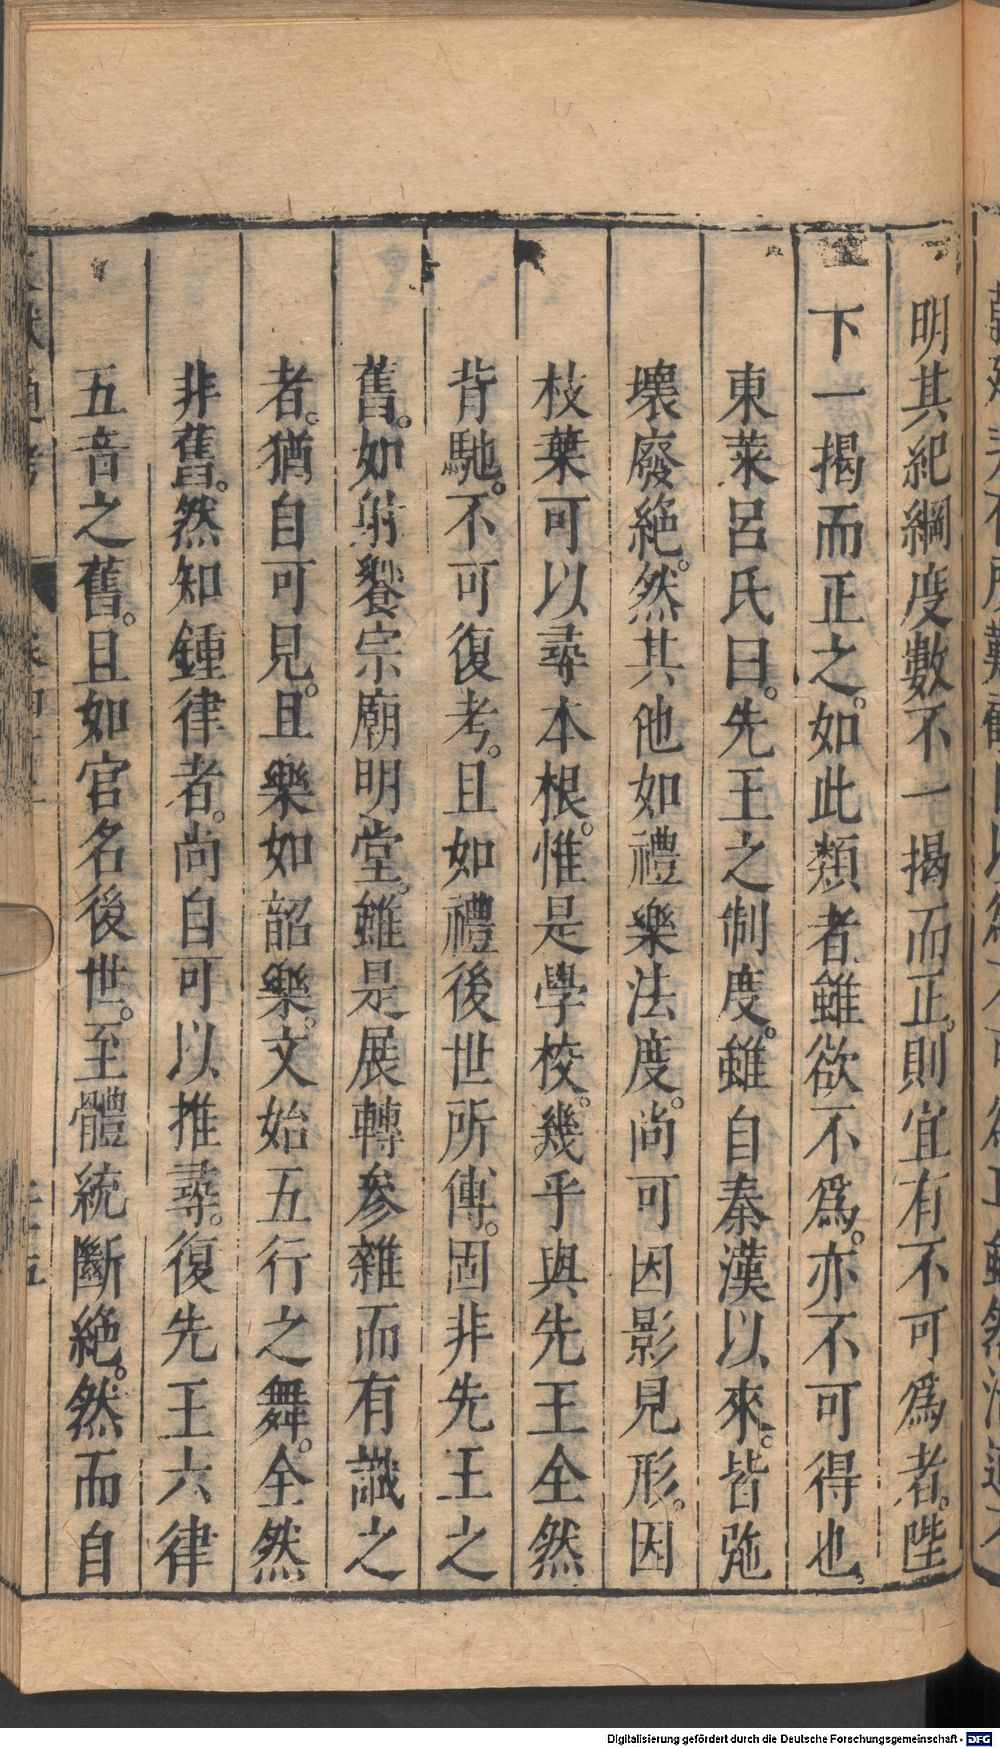 明其紀綱度數不一揭而正。則宜有不可爲者。陛
下一揭而正之。如此類者雖欲不爲。亦不可得也
東萊呂氏曰。先王之制度。雖自秦漢以來。皆弛
壞廢絶。然其他如禮樂法度。尚可因影見形。因
枝葉可以尋本根。惟是學校。幾乎與先王全然
背馳。不可復考。且如禮後世所傳。固非先王之
舊。如射饗宗廟明堂。雖是展轉參雜而有識之
者。猶自可見。且樂如韶樂。文始五行之舞。全然
非舊。然知鍾律者。尚自可以推尋。復先王六律
五音之舊。且如官名後世。至體統斷絶。然而自
通考
Digitalisierung gefördert durch die Deutsche Forschungsgemeinschaft - DFG